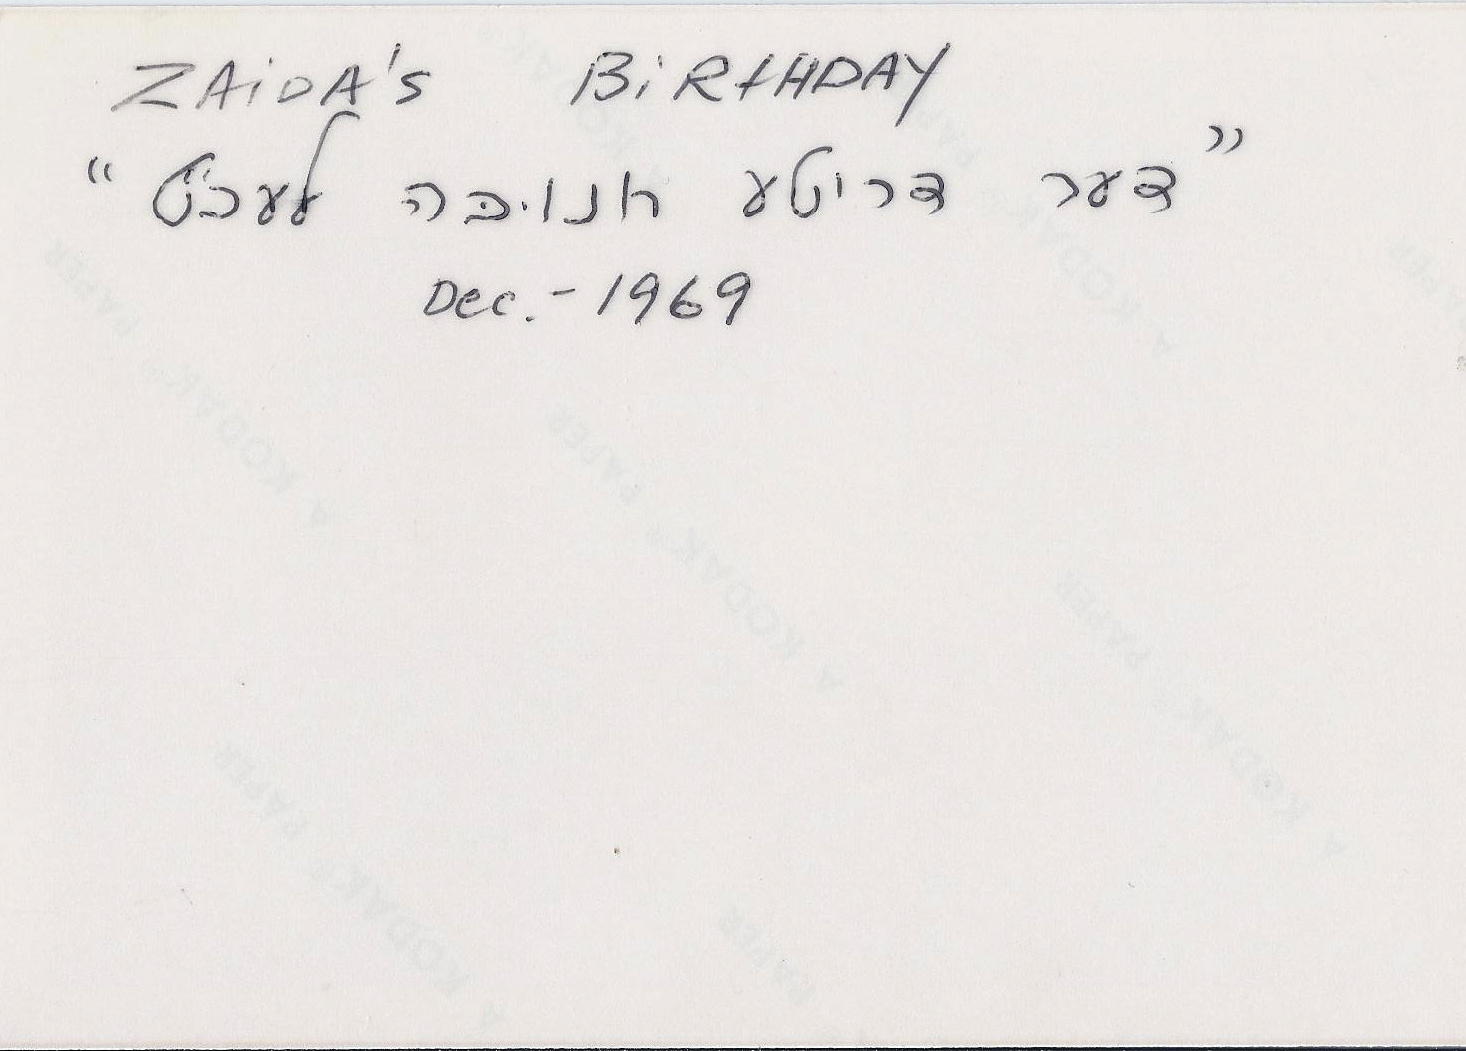 ZAiDA's BiRtHDAY
"דער דריטע חנוכּה לעכט"
Dec. - 1969
A KODAK® PAPER
A KODAK® PAPER
A KODAK® PAPER
A KODAK® PAPER
A KODAK® PAPER
A KODAK® PAPER
PAPER
PAPER